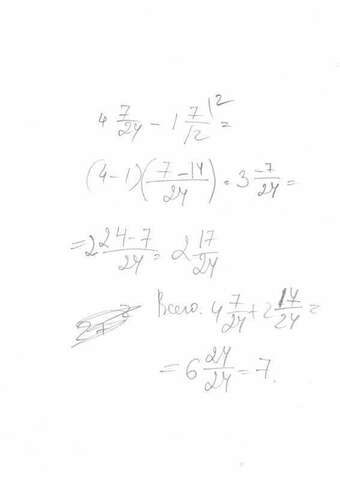 4 7/24 - 1 7/12 |2 =
(4-1)(7-14/24) = 3 -7/24 =
= 2 24-7/24 = 2 17/24
Всего: 4 7/24 + 2 17/24 =
= 6 24/24 = 7.